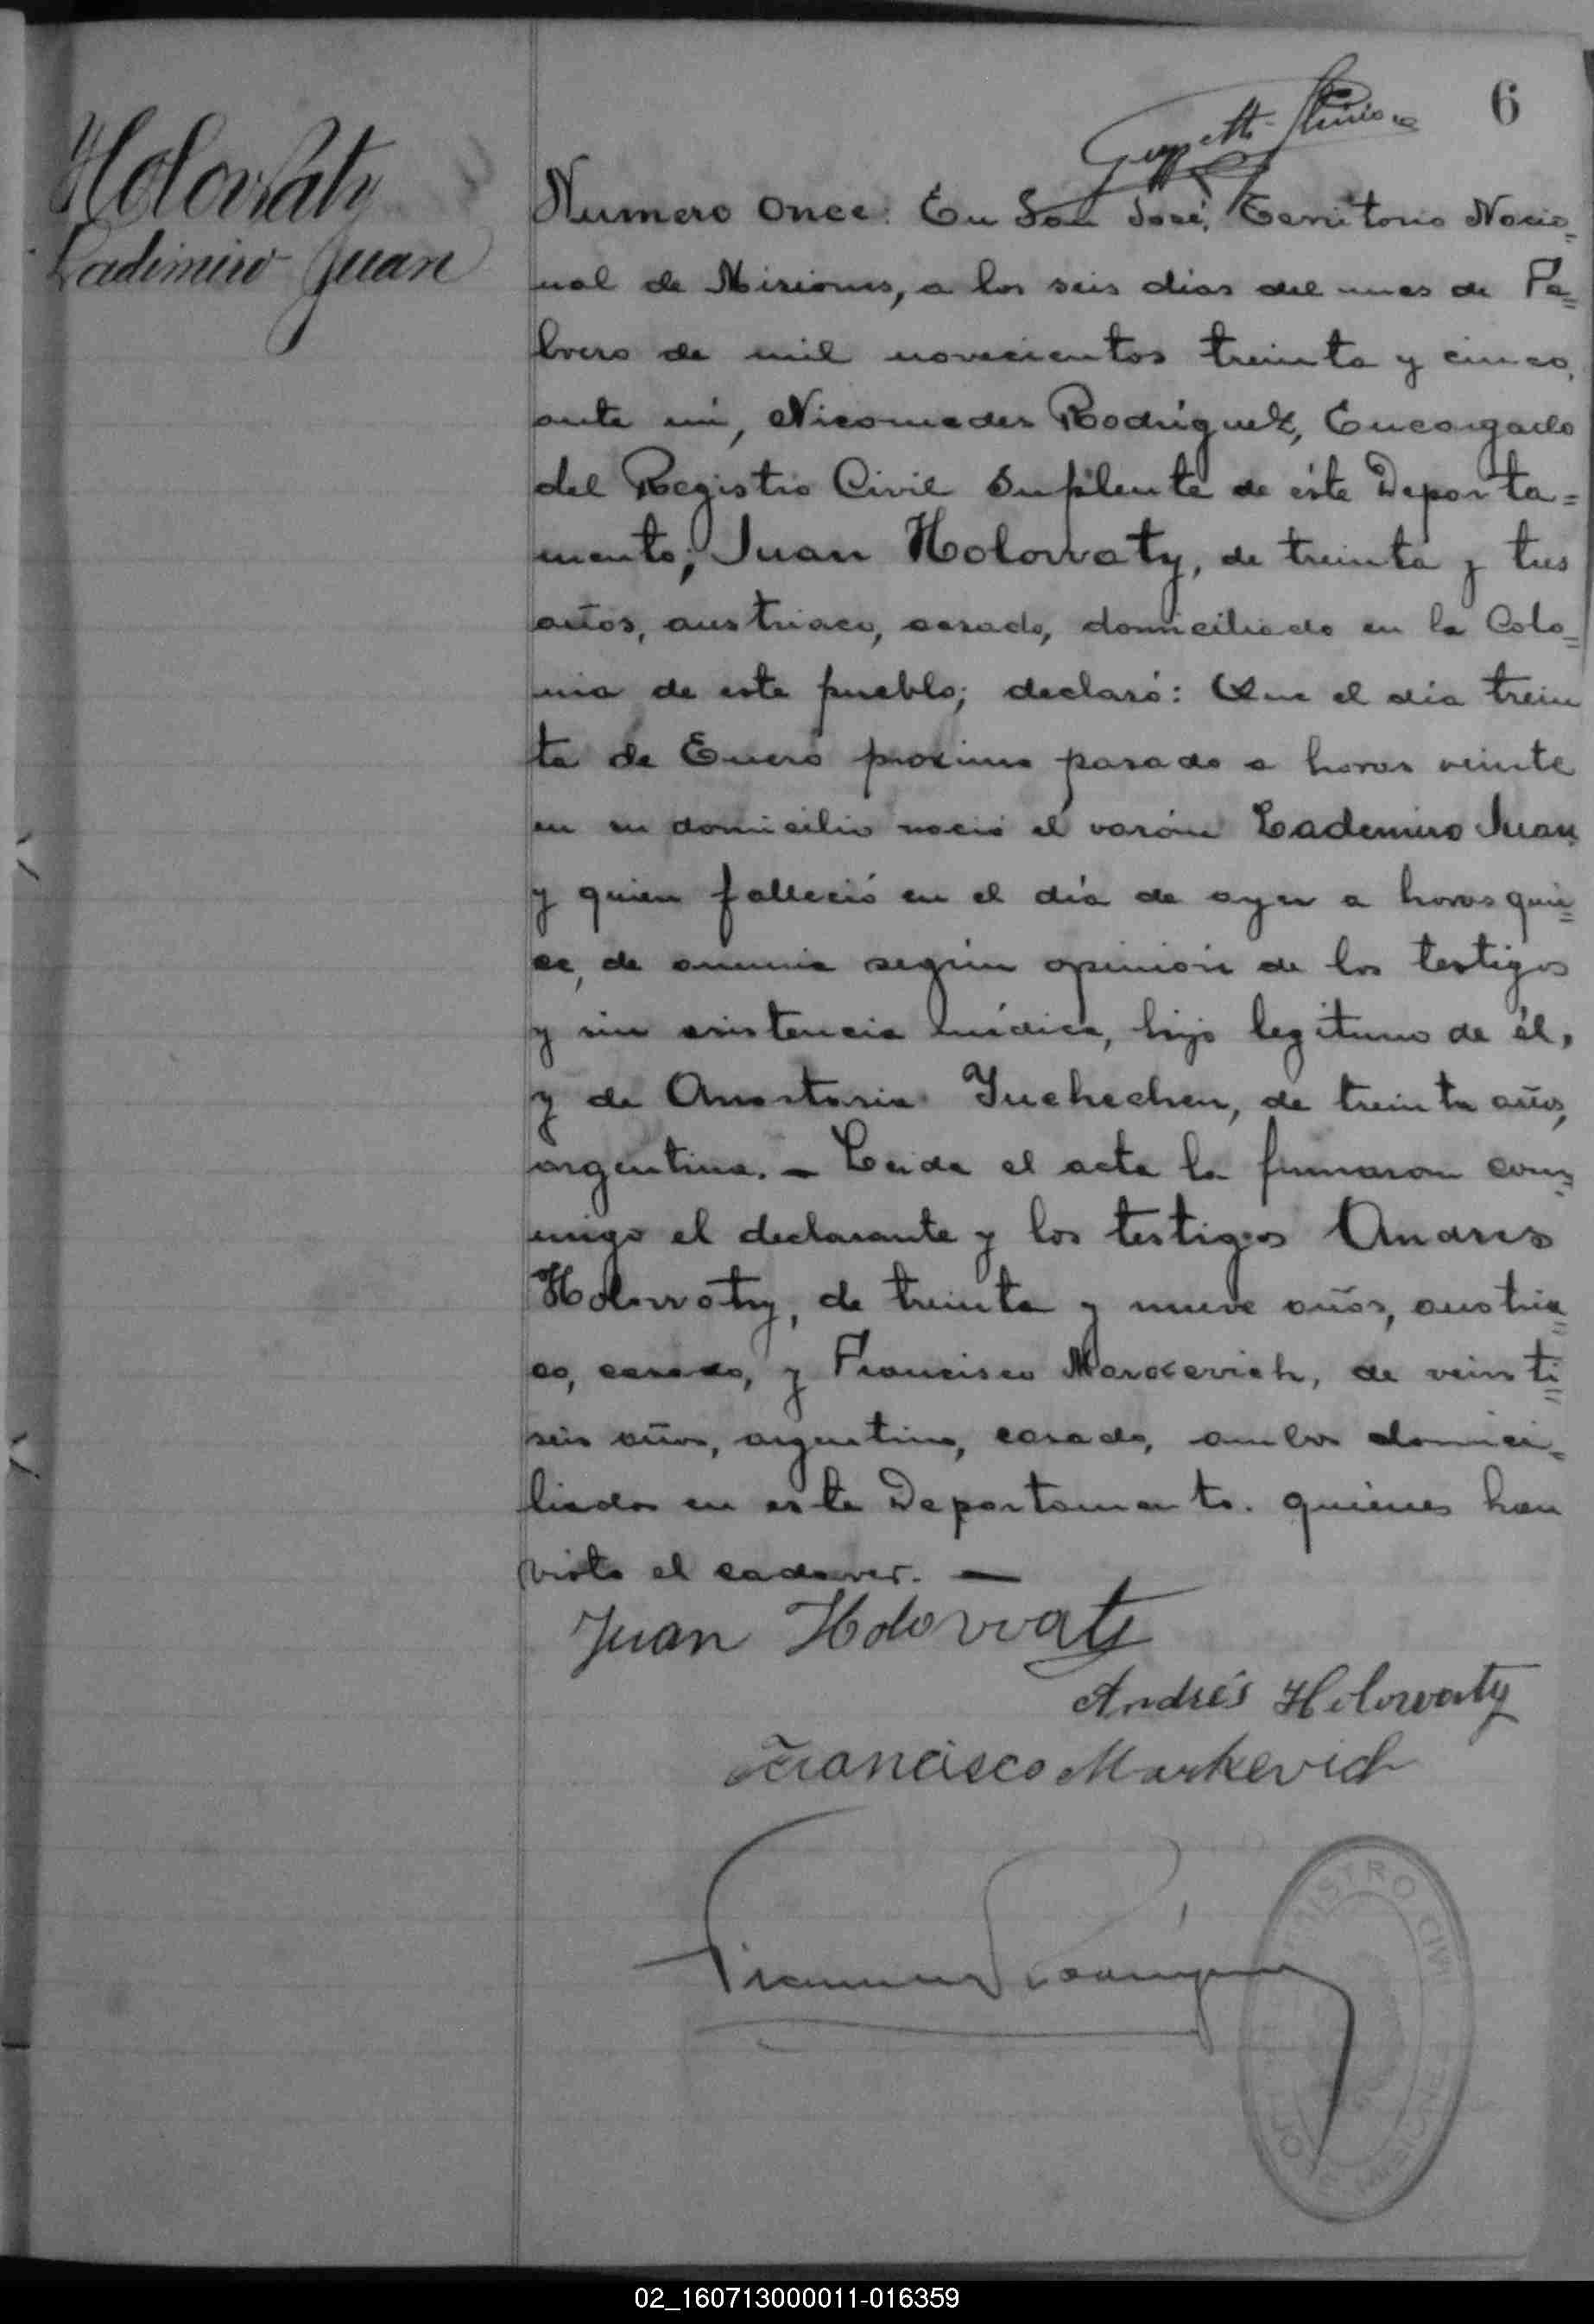 6
Holowaty
Ladimiro Juan
Numero Once: En San José, Territorio Nacio=
nal de Misiones, a los seis dias del mes de Fe=
brero de mil novecientos treinta y cinco,
ante mi, Nicomedes Rodriguez, Encargado
del Registro Civil Suplente de éste Departa=
mento; Juan Holowaty, de treinta y tres
años, austriaco, casado, domiciliado en la Colo=
nia de este pueblo; declaró: Que el día trein
ta de Enero proximo pasado a horas veinte
en su domicilio nació el varón Lademiro Juan
y quien falleció en el día de ayer a horas quin=
ce, de anemia según opinión de los testigos
y sin asistencia médica, hijo legitimo de él,
y de Anastasia Juchechen, de treinta años,
argentina. — Leida el acta la firmaron con=
migo el declarante y los testigos Andres
Holowaty, de treinta y nueve años, austria=
co, casado, y Francisco Markevich, de veinti=
seis años, argentino, casado, ambos domici=
liados en este Departamento. quienes han
visto el cadaver. —
Juan Holowaty
Andrés Holowaty
Francisco Markevich
REGISTRO CIVIL
02_160713000011-016359